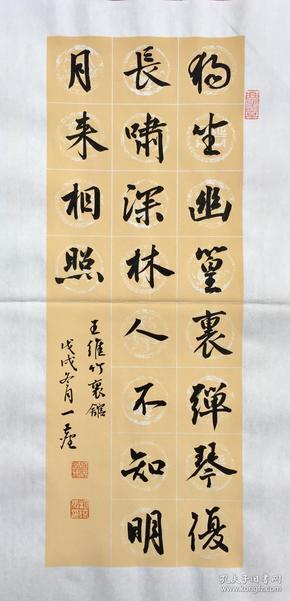 独坐幽篁裏彈琴復
長嘯深林人不知明
月来相照
王維竹裏館
戊戌冬月一
孔夫子旧书网